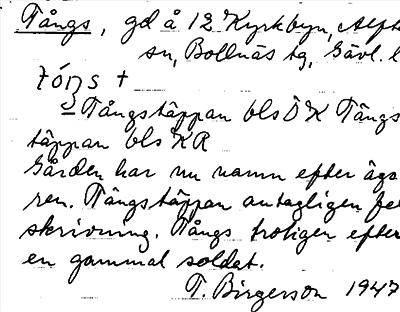 Tångs, gd å 12 Kyrkbyn, Alfta
sn, Bollnäs tg, Gävl. l
tóŋs +
Tångstäppan bls ÖK Tångs
täppan bls KR
Gården har nu namn efter äga
ren. Tångstäppan antagligen fel
skrivning. Tångs troligen efter
en gammal soldat.
T. Birgerson 1947